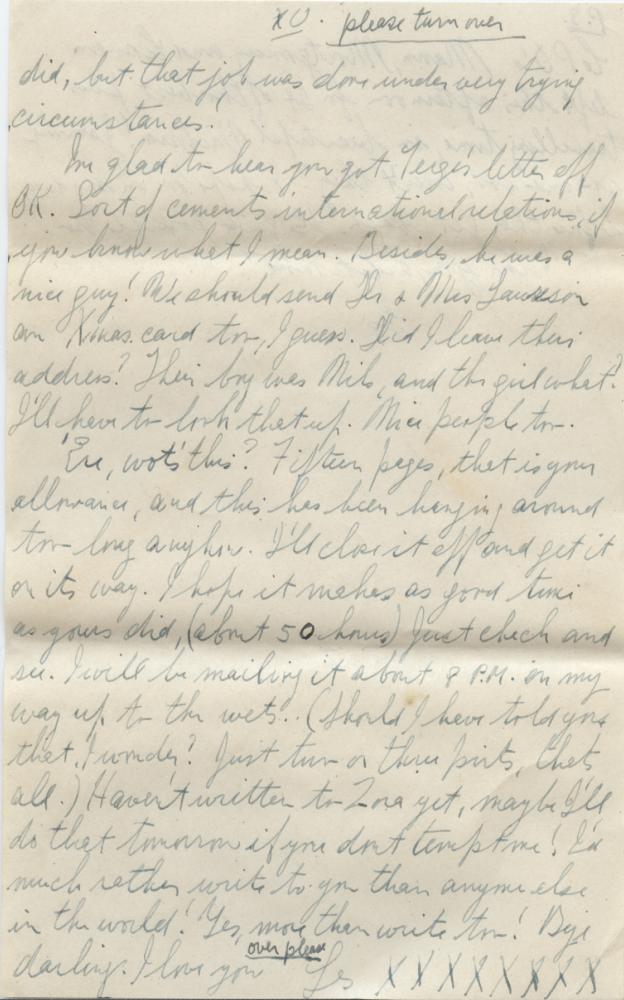 XV. please turn over
did, but that job was done under very trying
circumstances.
I'm glad to hear you got letter off
OK. Sort of cements international relations, if
you know what I mean. Besides, he was a
nice guy! We should send Mr & Mrs Lawson
an Xmas. card too, I guess. Did I leave their
address? Their boy was and the girl what?
I'll have to look that up. Nice people too.
'Ere, wot's this? Fifteen pages, that is your
allowance, and this has been hanging around
too long anyhow. I'll close it off and get it
on its way. I hope it makes as good time
as yours did, (about 50 hours) Just check and
see. I will be mailing it about 8 P.M. on my
way up to the wets.. (Should I have told you
that, I wonder? Just two or three pints, thats
all.) Haven't written to Zora yet, maybe I'll
do that tomorrow if you don't tempt me! I'd
much rather write to you than anyone else
in the world! Yes, more than write too! Bye
over please
darling. I love you Les X X X X X X X X